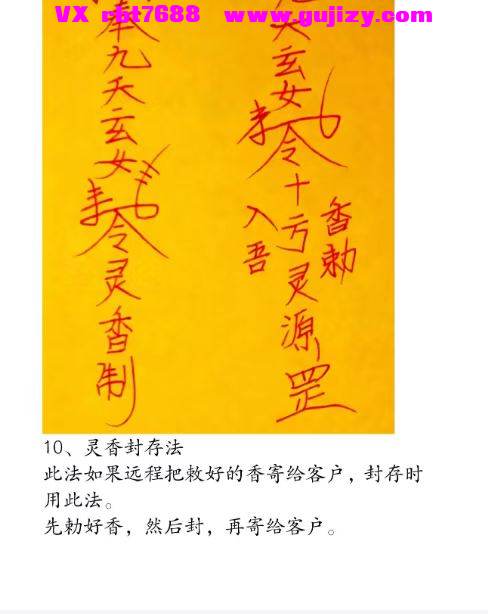 VX rbt7688 www.gujizy.com
奉九天玄女
令灵香制
九天玄女
令十方灵源罡
入吾
香勅
10、灵香封存法
此法如果远程把敕好的香寄给客户，封存时
用此法。
先勅好香，然后封，再寄给客户。